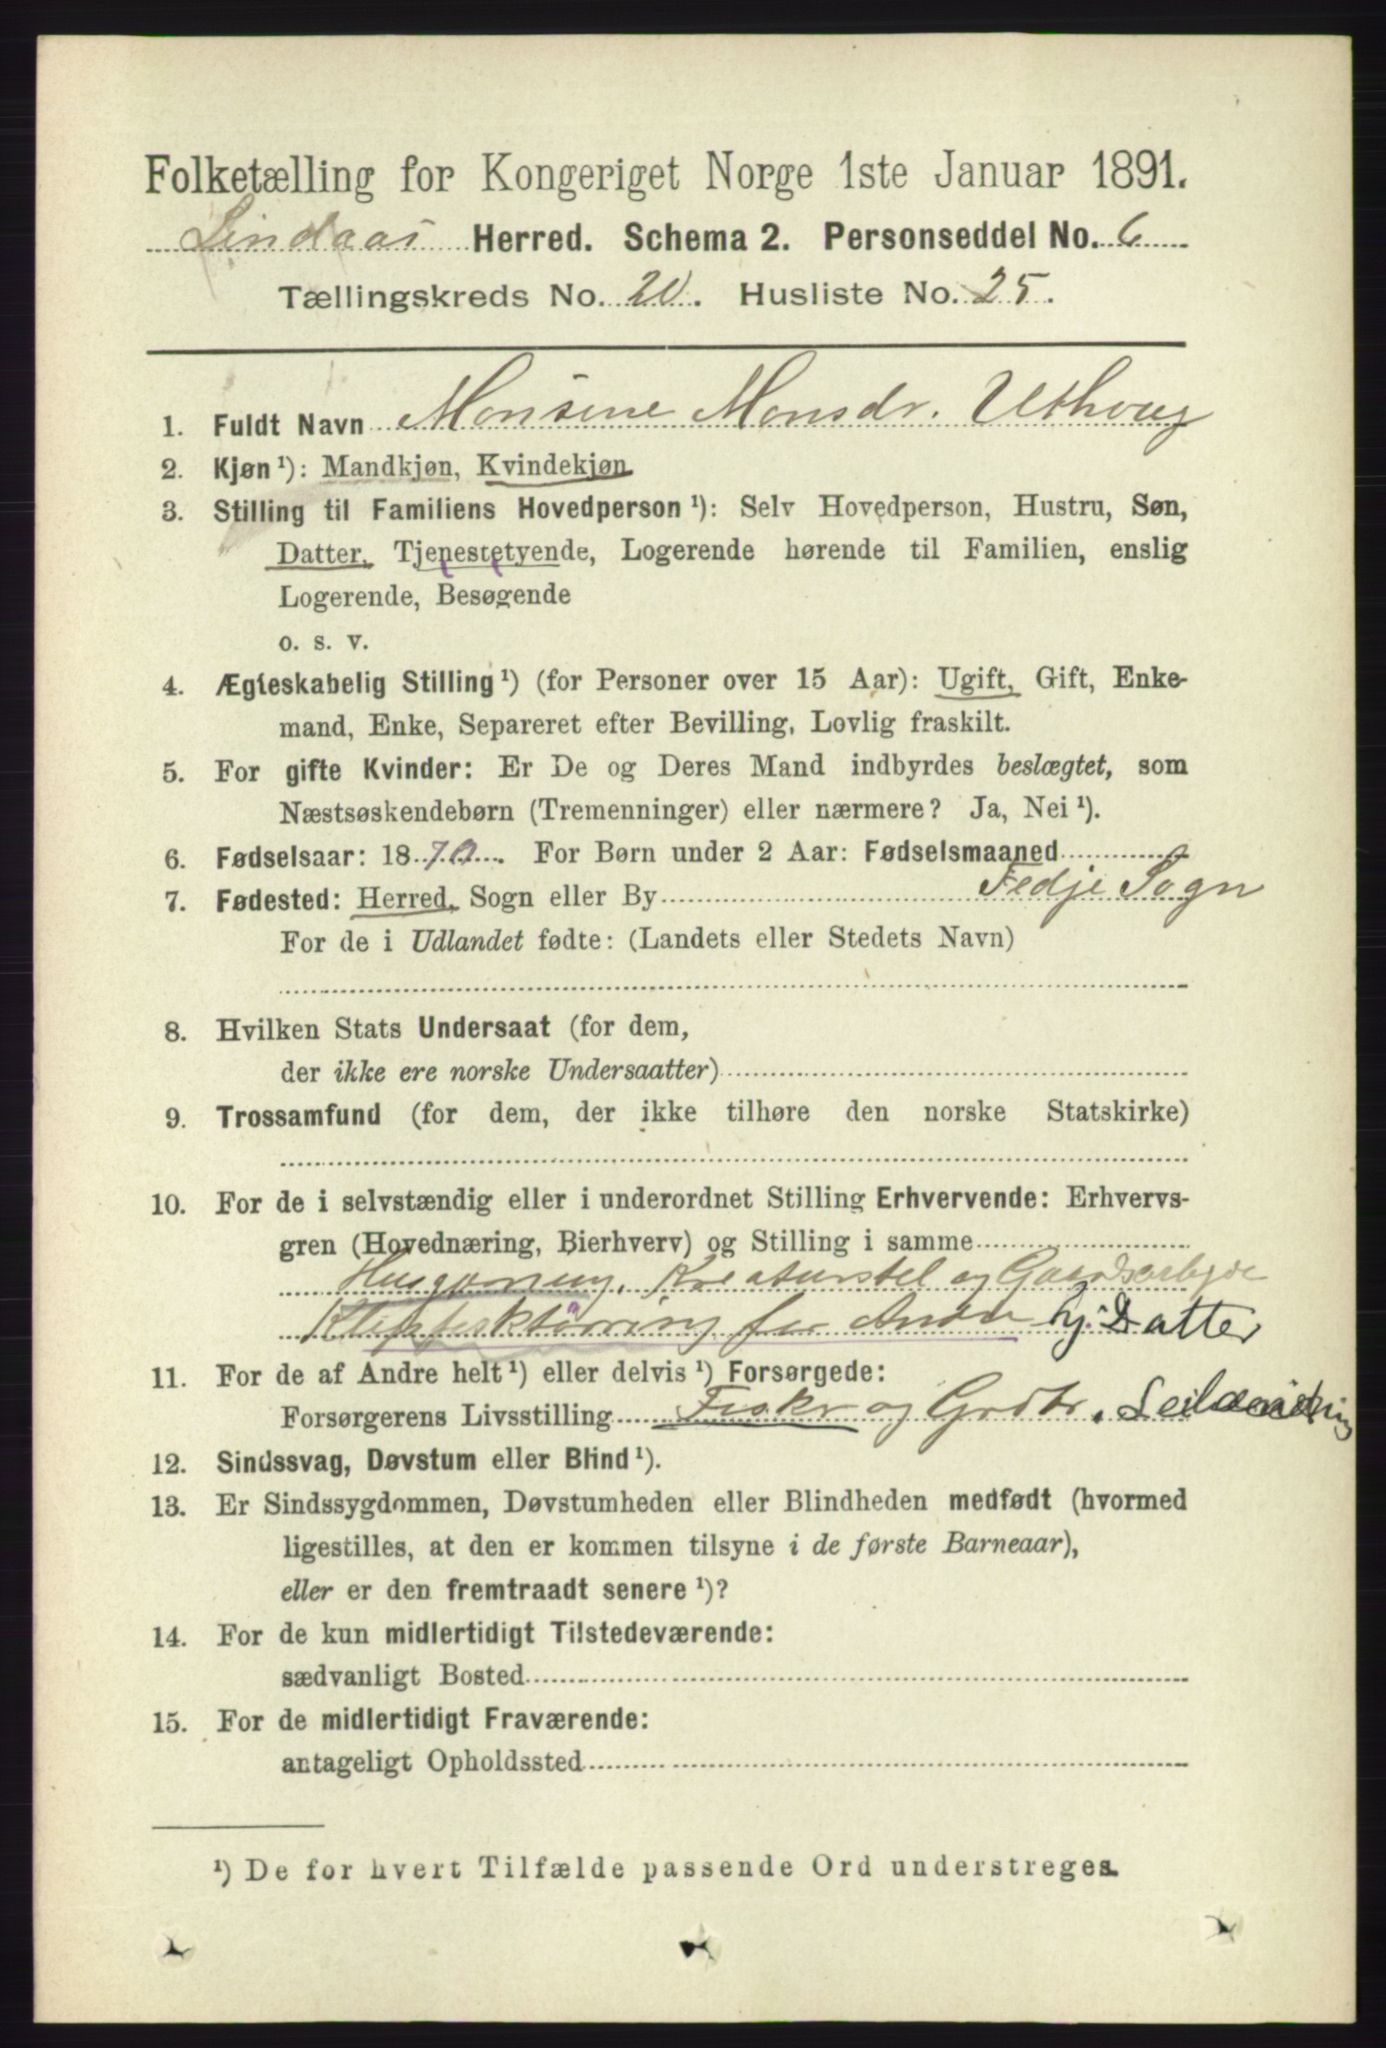 Folketælling for Kongeriget Norge 1ste Januar 1891.
Lindaas Herred. Schema 2. Personseddel No. 6
Tællingskreds No. 20. Husliste No. 25.
1. Fuldt Navn Monsine Monsdr. Uthoug
2. Kjøn ¹): Mandkjøn, Kvindekjøn
3. Stilling til Familiens Hovedperson ¹): Selv Hovedperson, Hustru, Søn,
Datter, Tjenestetyende, Logerende hørende til Familien, enslig
Logerende, Besøgende
o. s. v.
4. Ægteskabelig Stilling ¹) (for Personer over 15 Aar): Ugift, Gift, Enke-
mand, Enke, Separeret efter Bevilling, Lovlig fraskilt.
5. For gifte Kvinder: Er De og Deres Mand indbyrdes beslægtet, som
Næstsøskendebørn (Tremenninger) eller nærmere? Ja, Nei ¹).
6. Fødselsaar: 1870. For Børn under 2 Aar: Fødselsmaaned
7. Fødested: Herred, Sogn eller By Fedje Sogn
For de i Udlandet fødte: (Landets eller Stedets Navn)
8. Hvilken Stats Undersaat (for dem,
der ikke ere norske Undersaatter)
9. Trossamfund (for dem, der ikke tilhøre den norske Statskirke)
10. For de i selvstændig eller i underordnet Stilling Erhvervende: Erhvervs-
gren (Hovednæring, Bierhverv) og Stilling i samme
Husgjerning, Kreaturstel og Gaardsarbeide
Klipfisktörring for Andre hj. Datter
11. For de af Andre helt ¹) eller delvis ¹) Forsørgede:
Forsørgerens Livsstilling Fisker og Grdbr.
12. Sindssvag, Døvstum eller Blind ¹).
13. Er Sindssygdommen, Døvstumheden eller Blindheden medfødt (hvormed
ligestilles, at den er kommen tilsyne i de første Barneaar),
eller er den fremtraadt senere ¹)?
14. For de kun midlertidigt Tilstedeværende:
sædvanligt Bosted
15. For de midlertidigt Fraværende:
antageligt Opholdssted
¹) De for hvert Tilfælde passende Ord understreges.